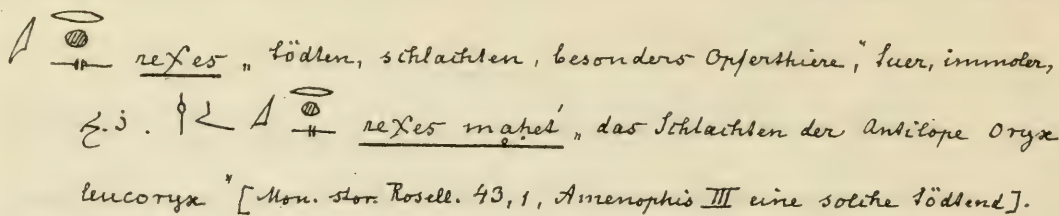 reχes „tödten, schlachten, besonders Opferthiere“, tuer, immoler,
z. B. reχes maḥeť „das Schlachten der Antilope Oryx
leucoryx“ [Mon. stor. Rosell. 43, 1, Amenophis III eine solche tödtend].